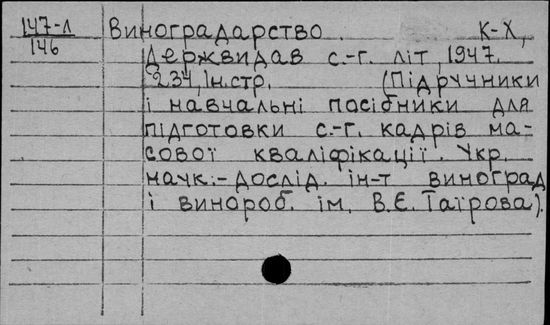 147-л Виноградарство. К-Х,
146 Держвидав с.-г. літ, 1947.
234, Ін.стр. (Підручники
і навчальні посібники для
підготовки с.-г. кадрів ма-
сової кваліфікації. Укр.
научк.-дослід. ін-т виноград
і винороб. ім. В.Є. Таїрова).